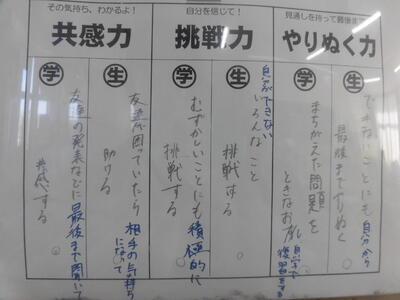 その気持ち、わかるよ！
共感力
自分を信じて！
挑戦力
見通しを持って最後ま
やりぬく力
生
できないことにも自分から
最後までやりぬく
学
まちがえた問題を
ときなおし
自学で
復習する
生
自分ができない
いろんなこと
挑戦する
学
むずかしいことにも積極的に
挑戦する
生
友達が困っていたら相手の気持ち
になって
助ける
学
友達の発表などに最後まで聞いて
共感する